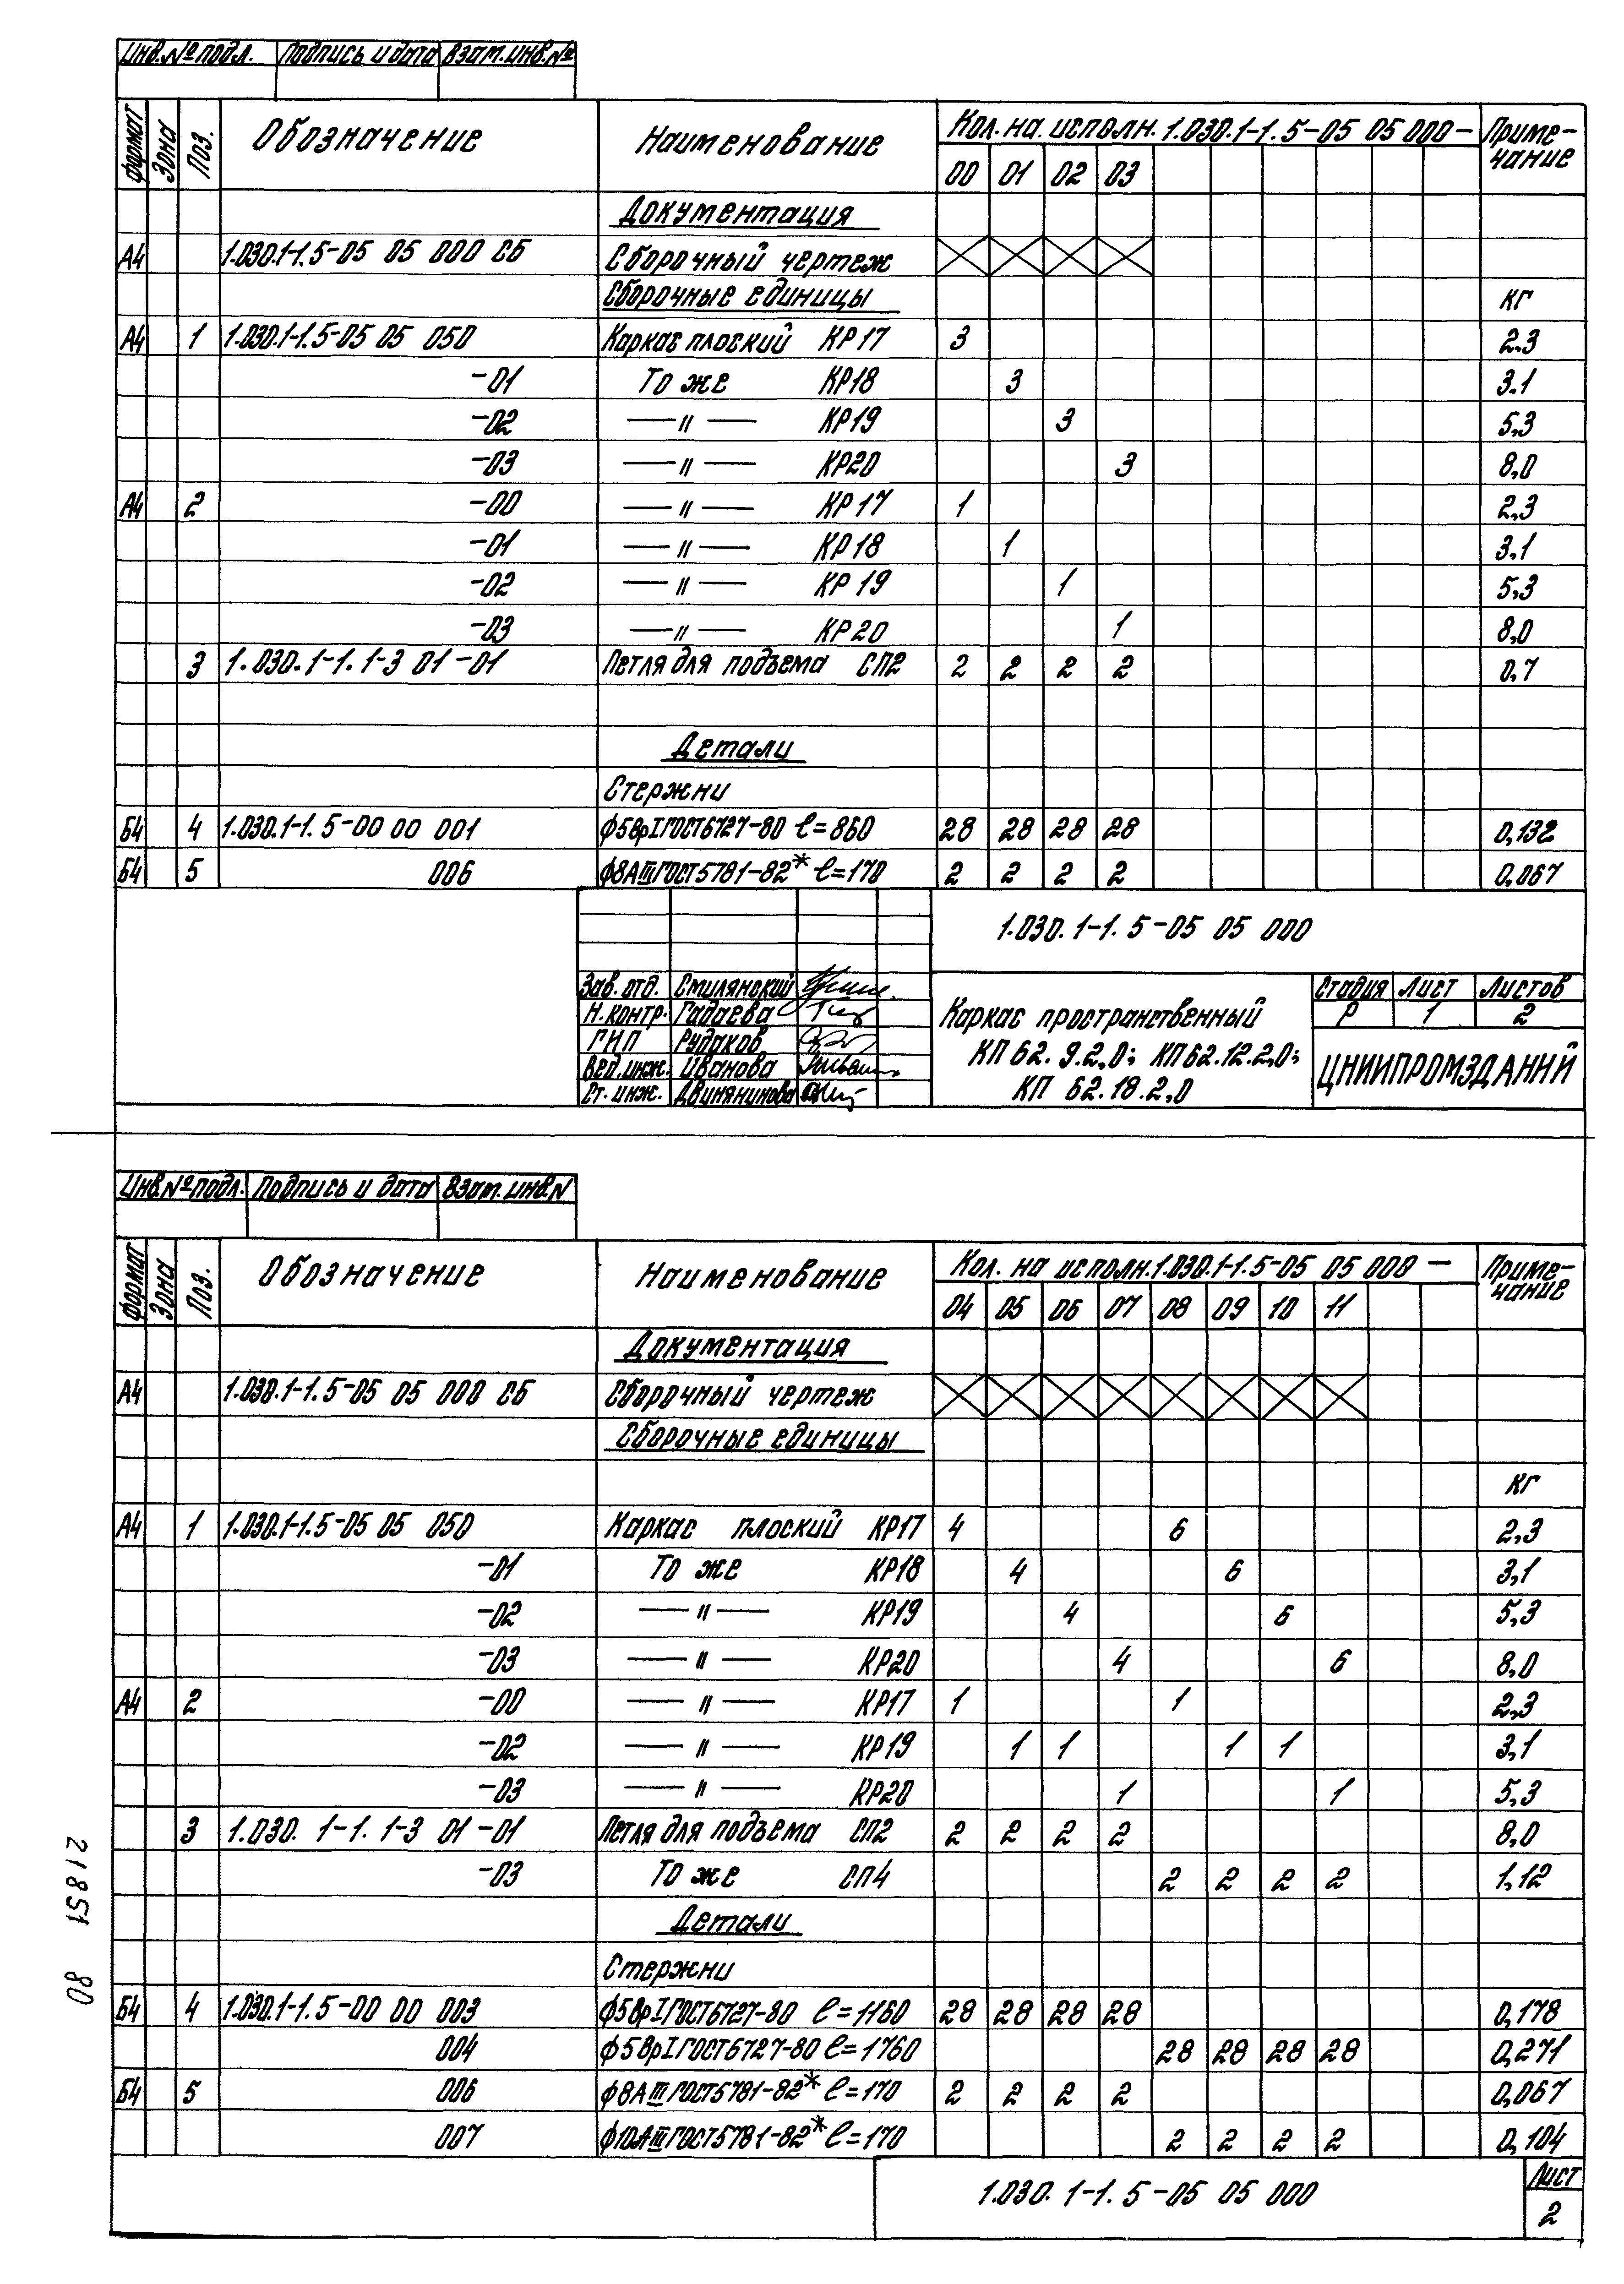 Инв.№подл. Подпись и дата Взам.инв.№
формат Зона Поз. Обозначение Наименование Кол. на. исполн. 1.030.1-1.5-05 05 000- Приме-
чание
00 01 02 03
Документация
А4 1.030.1-1.5-05 05 000 СБ Сборочный чертеж
Сборочные единицы кг
А4 1 1.030.1-1.5-05 05 050 Каркас плоский КР17 3 2.3
-01 То же КР18 3 3.1
-02 — " — КР19 3 5,3
-03 — " — КР20 3 8,0
А4 2 -00 — " — КР17 1 2,3
-01 — " — КР18 1 3,1
-02 — " — КР19 1 5,3
-03 — " — КР20 1 8,0
3 1.030.1-1.1-3 01-01 Петля для подъема СП2 2 2 2 2 0,7
Детали
Стержни
Б4 4 1.030.1-1.5-00 00 001 ф5ВрI ГОСТ6727-80 ℓ=860 28 28 28 28 0,132
Б4 5 006 ф8АIII ГОСТ5781-82* ℓ=170 2 2 2 2 0,067
1.030.1-1.5-05 05 000
Зав. отд. Смилянский
Н.контр. Гадаева
ГИП Рудаков
Вед.инж. Иванова
Ст. инж. Двинянинова
Каркас пространственный
КП 62.9.2,0; КП62.12.2,0;
КП 62.18.2,0
Стадия Лист Листов
Р 1 2
ЦНИИПРОМЗДАНИЙ
Инв.№подл. Подпись и дата Взам.инв.N
формат Зона Поз. Обозначение Наименование Кол. на исполн.1.030.1-1.5-05 05 000 - Приме-
чание
04 05 06 07 08 09 10 11
Документация
А4 1.030.1-1.5-05 05 000 СБ Сборочный чертеж
Сборочные единицы
кг
А4 1 1.030.1-1.5-05 05 050 Каркас плоский КР17 4 6 2,3
-01 То же КР18 4 6 3,1
-02 — " — КР19 4 6 5,3
-03 — " — КР20 4 6 8,0
А4 2 -00 — " — КР17 1 1 2,3
-02 — " — КР19 1 1 1 1 3,1
-03 — " — КР20 1 1 5,3
3 1.030. 1-1.1-3 01-01 Петля для подъема СП2 2 2 2 2 8,0
-03 То же СП4 2 2 2 2 1,12
Детали
Стержни
Б4 4 1.030.1-1.5-00 00 003 ф5ВрI ГОСТ6727-80 ℓ=1160 28 28 28 28 0,178
004 ф5ВрI ГОСТ6727-80 ℓ=1760 28 28 28 28 0,271
Б4 5 006 ф8АIII ГОСТ5781-82* ℓ=170 2 2 2 2 0,067
007 ф10АIII ГОСТ5781-82* ℓ=170 2 2 2 2 0,104
1.030. 1-1.5-05 05 000
Лист
2
21851 80